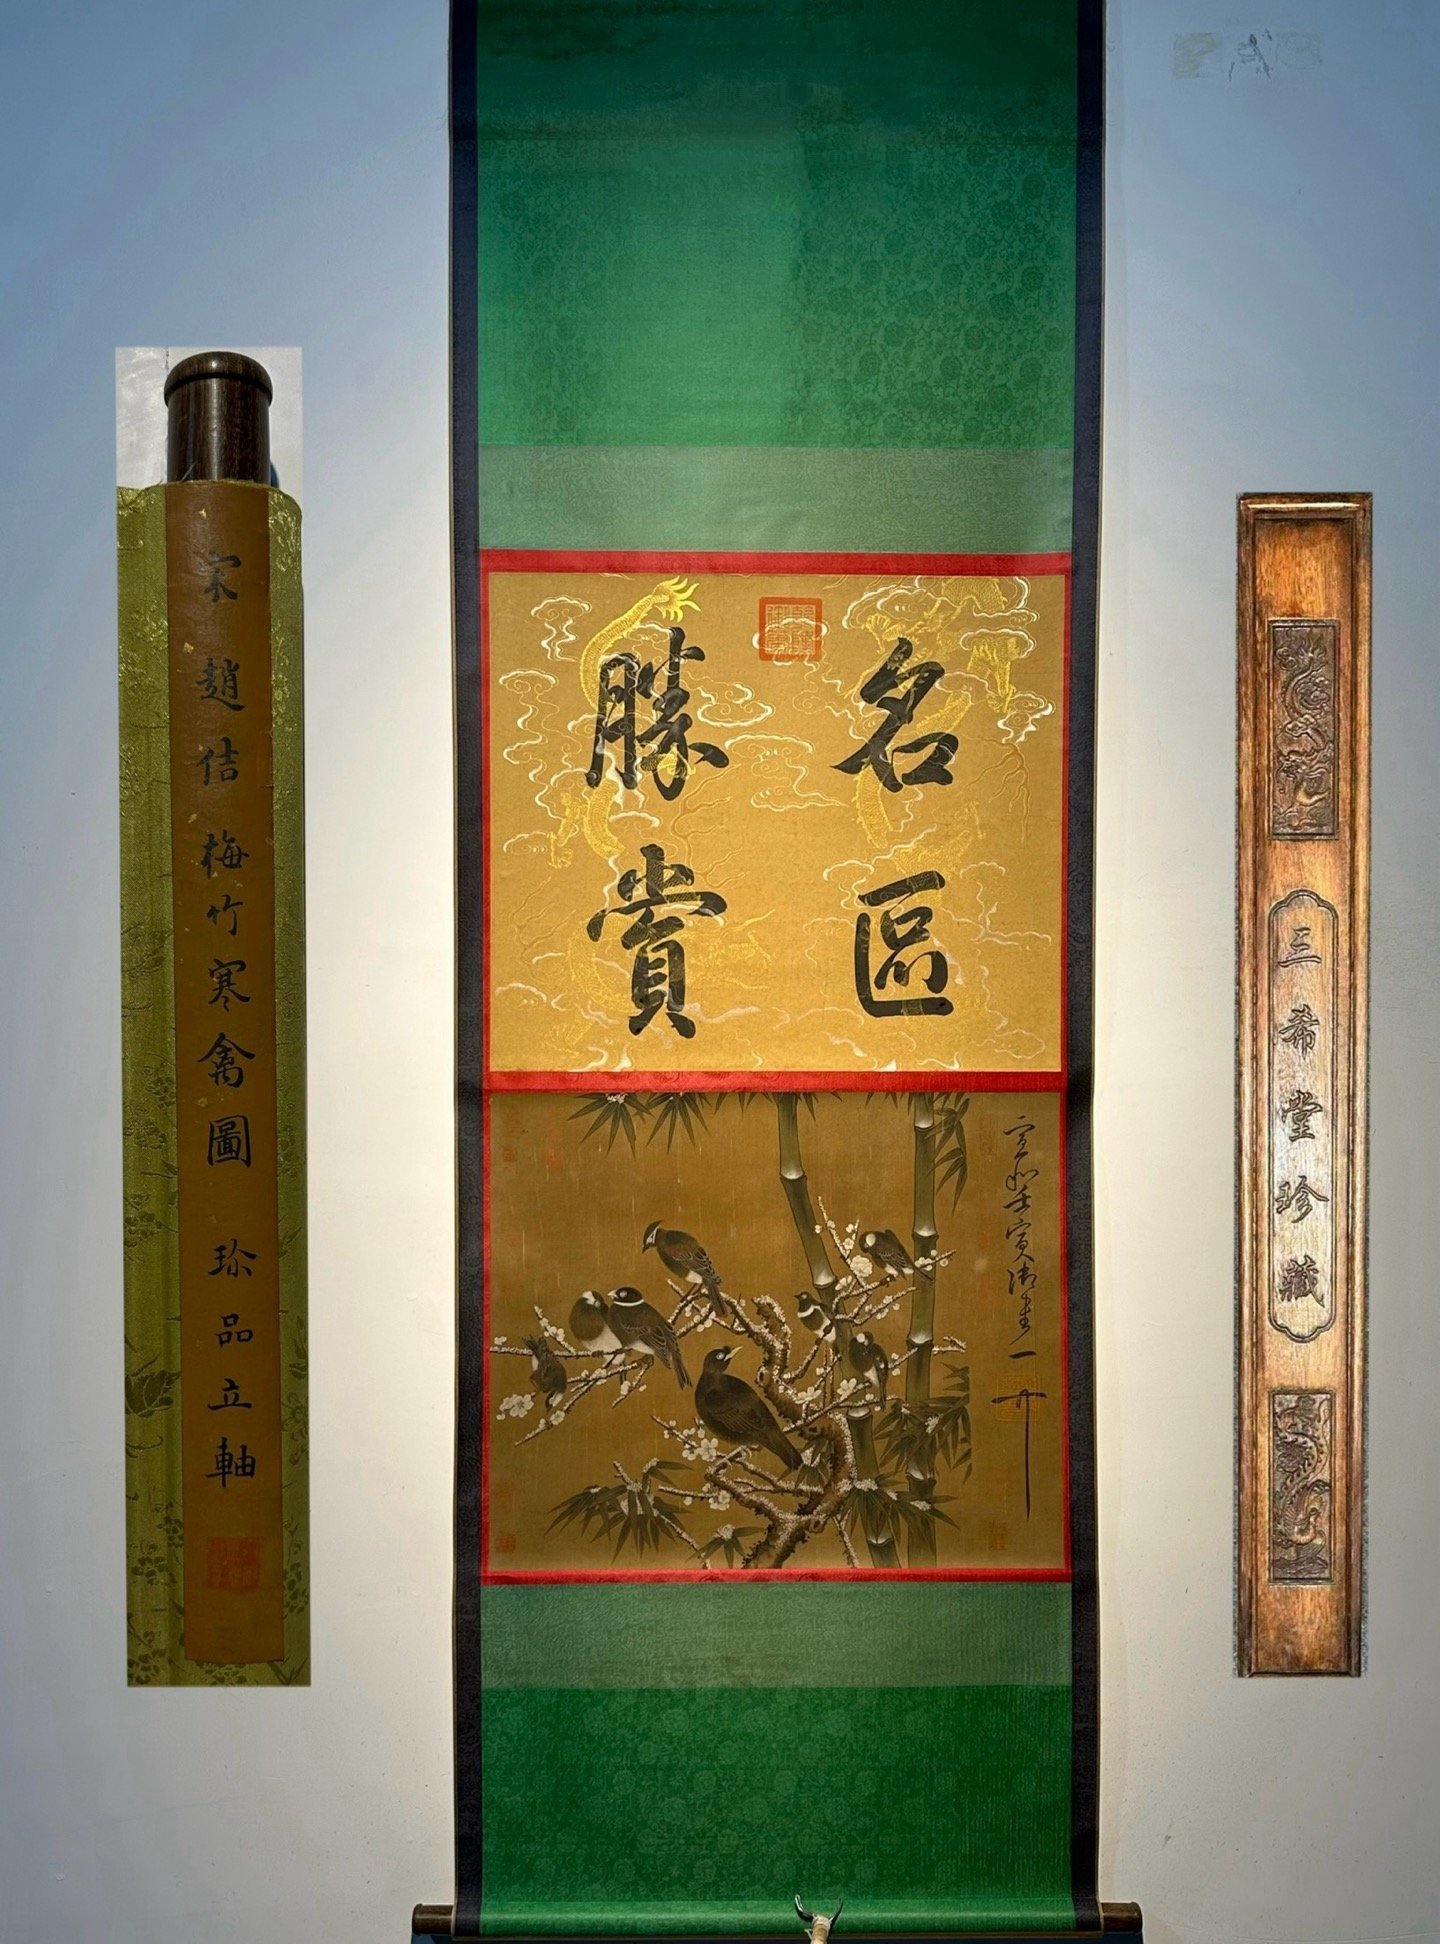 宋趙佶梅竹寒禽圖 珎品立軸
名區
勝賞
宣和壬寅御畫
三希堂珍藏